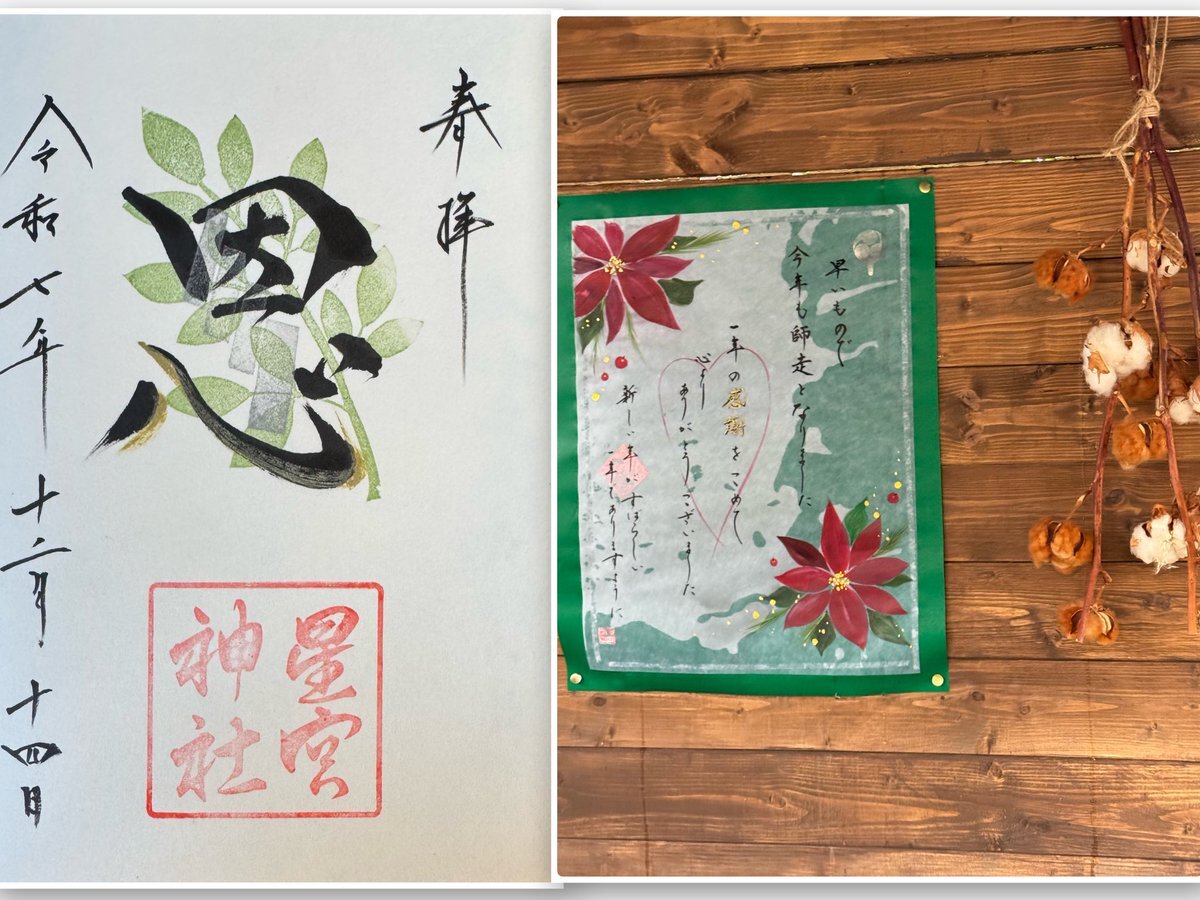 奉拝
恩
星宮
神社
令和七年十二月十四日
早いもので
今年も師走となりました
一年の感謝をこめて
心より
ありがとうございました
新しい年がすばらしい
一年でありますように